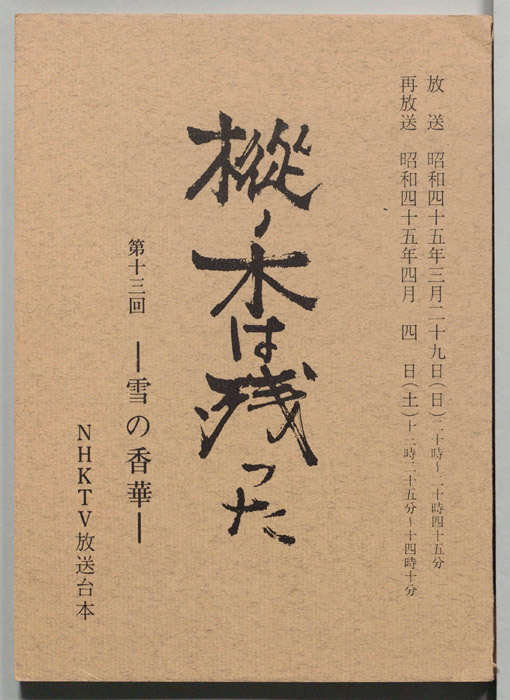 放送 昭和四十五年三月二十九日(日)二十時~二十時四十五分
再放送 昭和四十五年四月 四 日(土)十三時二十五分~十四時十分
樅ノ木は残った
第十三回 ―雪の香華―
NHKTV放送台本